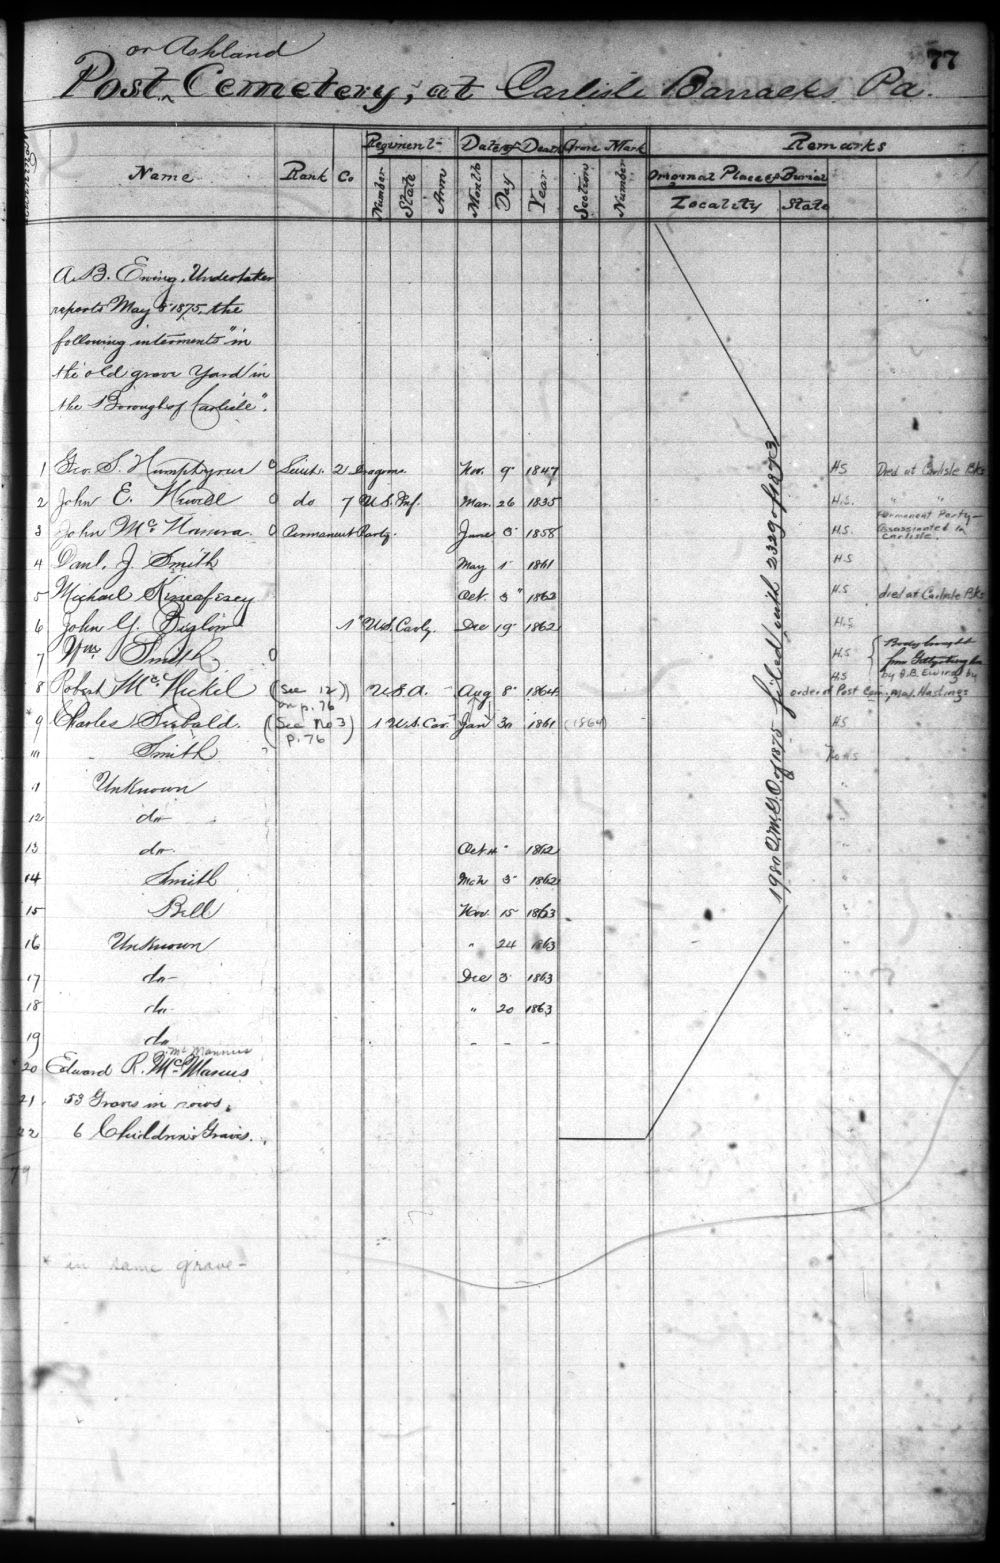 77
or Ashland
Post Cemetery, at Carlisle Barracks Pa.
Name Rank Co Regiment Date of Death Grave Mark Remarks
Number State Arm Month Day Year Section Number Original Place of Burial
Locality State
A. B. Ewing, Undertaker
reports May 5 1875, the
following interments "in
the old grave Yard in
the Borough of Carlisle".
1 Geo. S. Humphyrus Lieut. 2 Dragoons. Nov. 9 1847 HS Died at Carlisle Bks
2 John E. Newell do 7 U.S. Inf. Mar. 26 1835 H.S. " "
3 John McNamra. Permanent Party. June 5 1858 H.S. Permanent Party- assassinated in Carlisle.
4 Danl. J. Smith May 1 1861 H.S
5 Michael Oct. 3" 1863 H.S died at Carlisle Bks
6 John G. Biglow 1" U.S. Cavly. Dec 19 1862 H.S
7 Wm Smith H.S Body brought
from Gettysburg
8 Robert McNickel (See 12) on p. 76 U.S.A. - Aug 8" 1864 H.S by A.B. Ewing by
order of Post Com, Maj. Hastings
* 9 Charles Seebold. (See No 3) p. 76 1 U.S. Cav. Jany 30 1861 (1864) HS
Smith
11 Unknown
12 do-
13 do- Oct 4 " 1862
14 Smith Mch 5 " 1862
15 Bell Nov. 15 1863
16 Unknown " 24 1863
17 do- Dec 3 1863
18 do- " 20 1863
19 do - - -
McMannus
20 Edward R. McManus
21 53 Graves in rows.
22 6 Children's Graves.
79
1980 Q.M.G.O. of 1875 filed with 2329 of 1873
* in same grave-